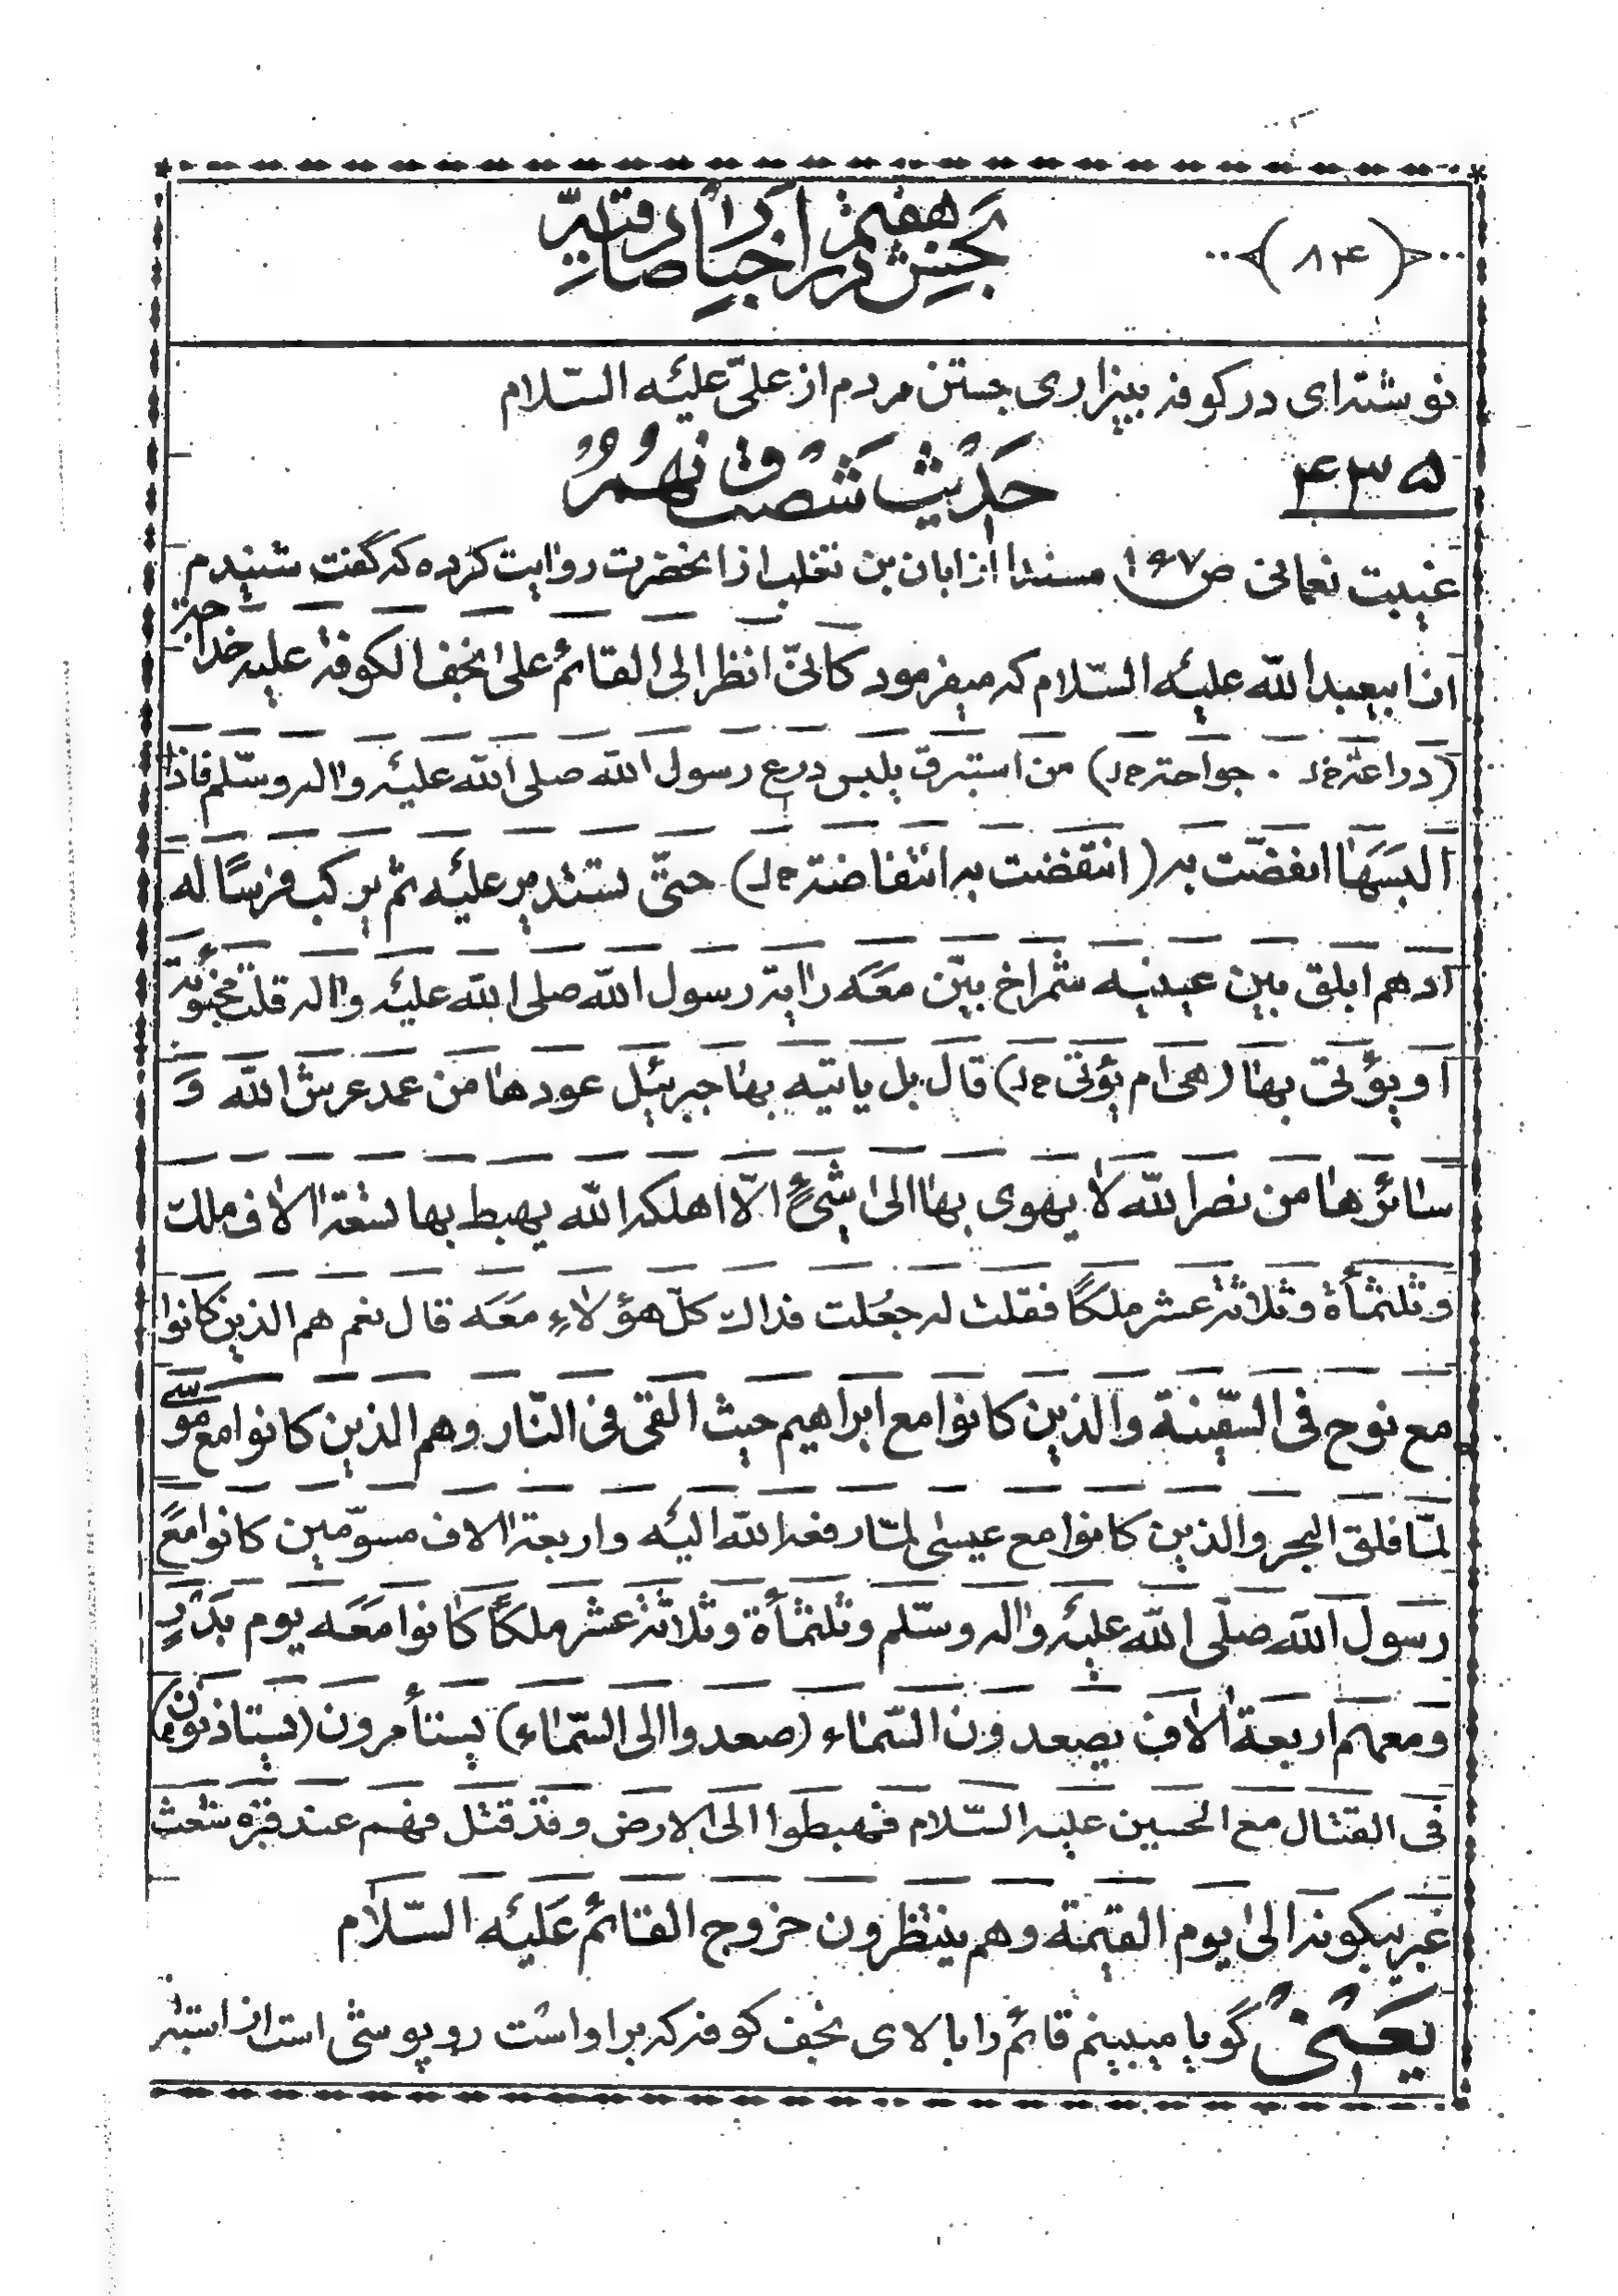 (۸۴)
بخش هفتم در اخبار صادقیه
نوشته‌ای در کوفه بیزاری جستن مردم از علیّ علیه السّلام
۴۳۵
حدیث شصت و نهم
غیبت نعمانی ص ۱۶۷ مسنداً از ابان بن تغلب از آنحضرت روایت کرده که گفت شنیدم
از ابیعبدالله علیه السّلام که میفرمود کانّی انظر الی القائم علی نجف الکوفة علیه خداجة
(دراعة خ‌ل . جواحة خ‌ل) من استبرق یلبس درع رسول الله صلی الله علیه واله وسلّم فاذا
البسها انفضّت به (انتفضت به انتفاضة خ‌ل) حتّی تستدیر علیه ثم یرکب فرسًا له
ادهم ابلق بین عینیه شمراخ بیّن معه رایة رسول الله صلی الله علیه واله قلت مخبوّة
او یؤتی بها (هی ام یؤتی خ‌ل) قال بل یاتیه بها جبرئیل عودها من عمد عرش الله و
سائرها من نصر الله لا یهوی بها الی شیءٍ الّا اهلکه الله یهبط بها تسعة الاف ملك
وثلثمأة وثلاثة عشر ملکًا فقلت له جعلت فداك کلّ هؤلاءِ معه قال نعم هم الذین کانوا
مع نوح فی السّفینة والذین کانوا مع ابراهیم حیث القی فی النّار وهم الذین کانوا مع موسی
لمّا فلق البحر والذین کانوا مع عیسی لمّا رفعه الله الیه واربعة الاف مسوّمین کانوا مع
رسول الله صلّی الله علیه واله وسلّم وثلثمأة وثلاثة عشر ملکًا کانوا معه یوم بدرٍ
ومعهم اربعة الاف یصعدون السّماء (صعدوا الی السّماء) یستأمرون (یستاذنون خ)
فی القتال مع الحسین علیه السّلام فهبطوا الی الارض وقد قتل فهم عند قبره شعث
غبر یبکونه الی یوم القیمة وهم ینتظرون خروج القائم علیه السّلام
یعنی گویا میبینم قائم را بالای نجف کوفه که بر او است روپوشی است از استبر